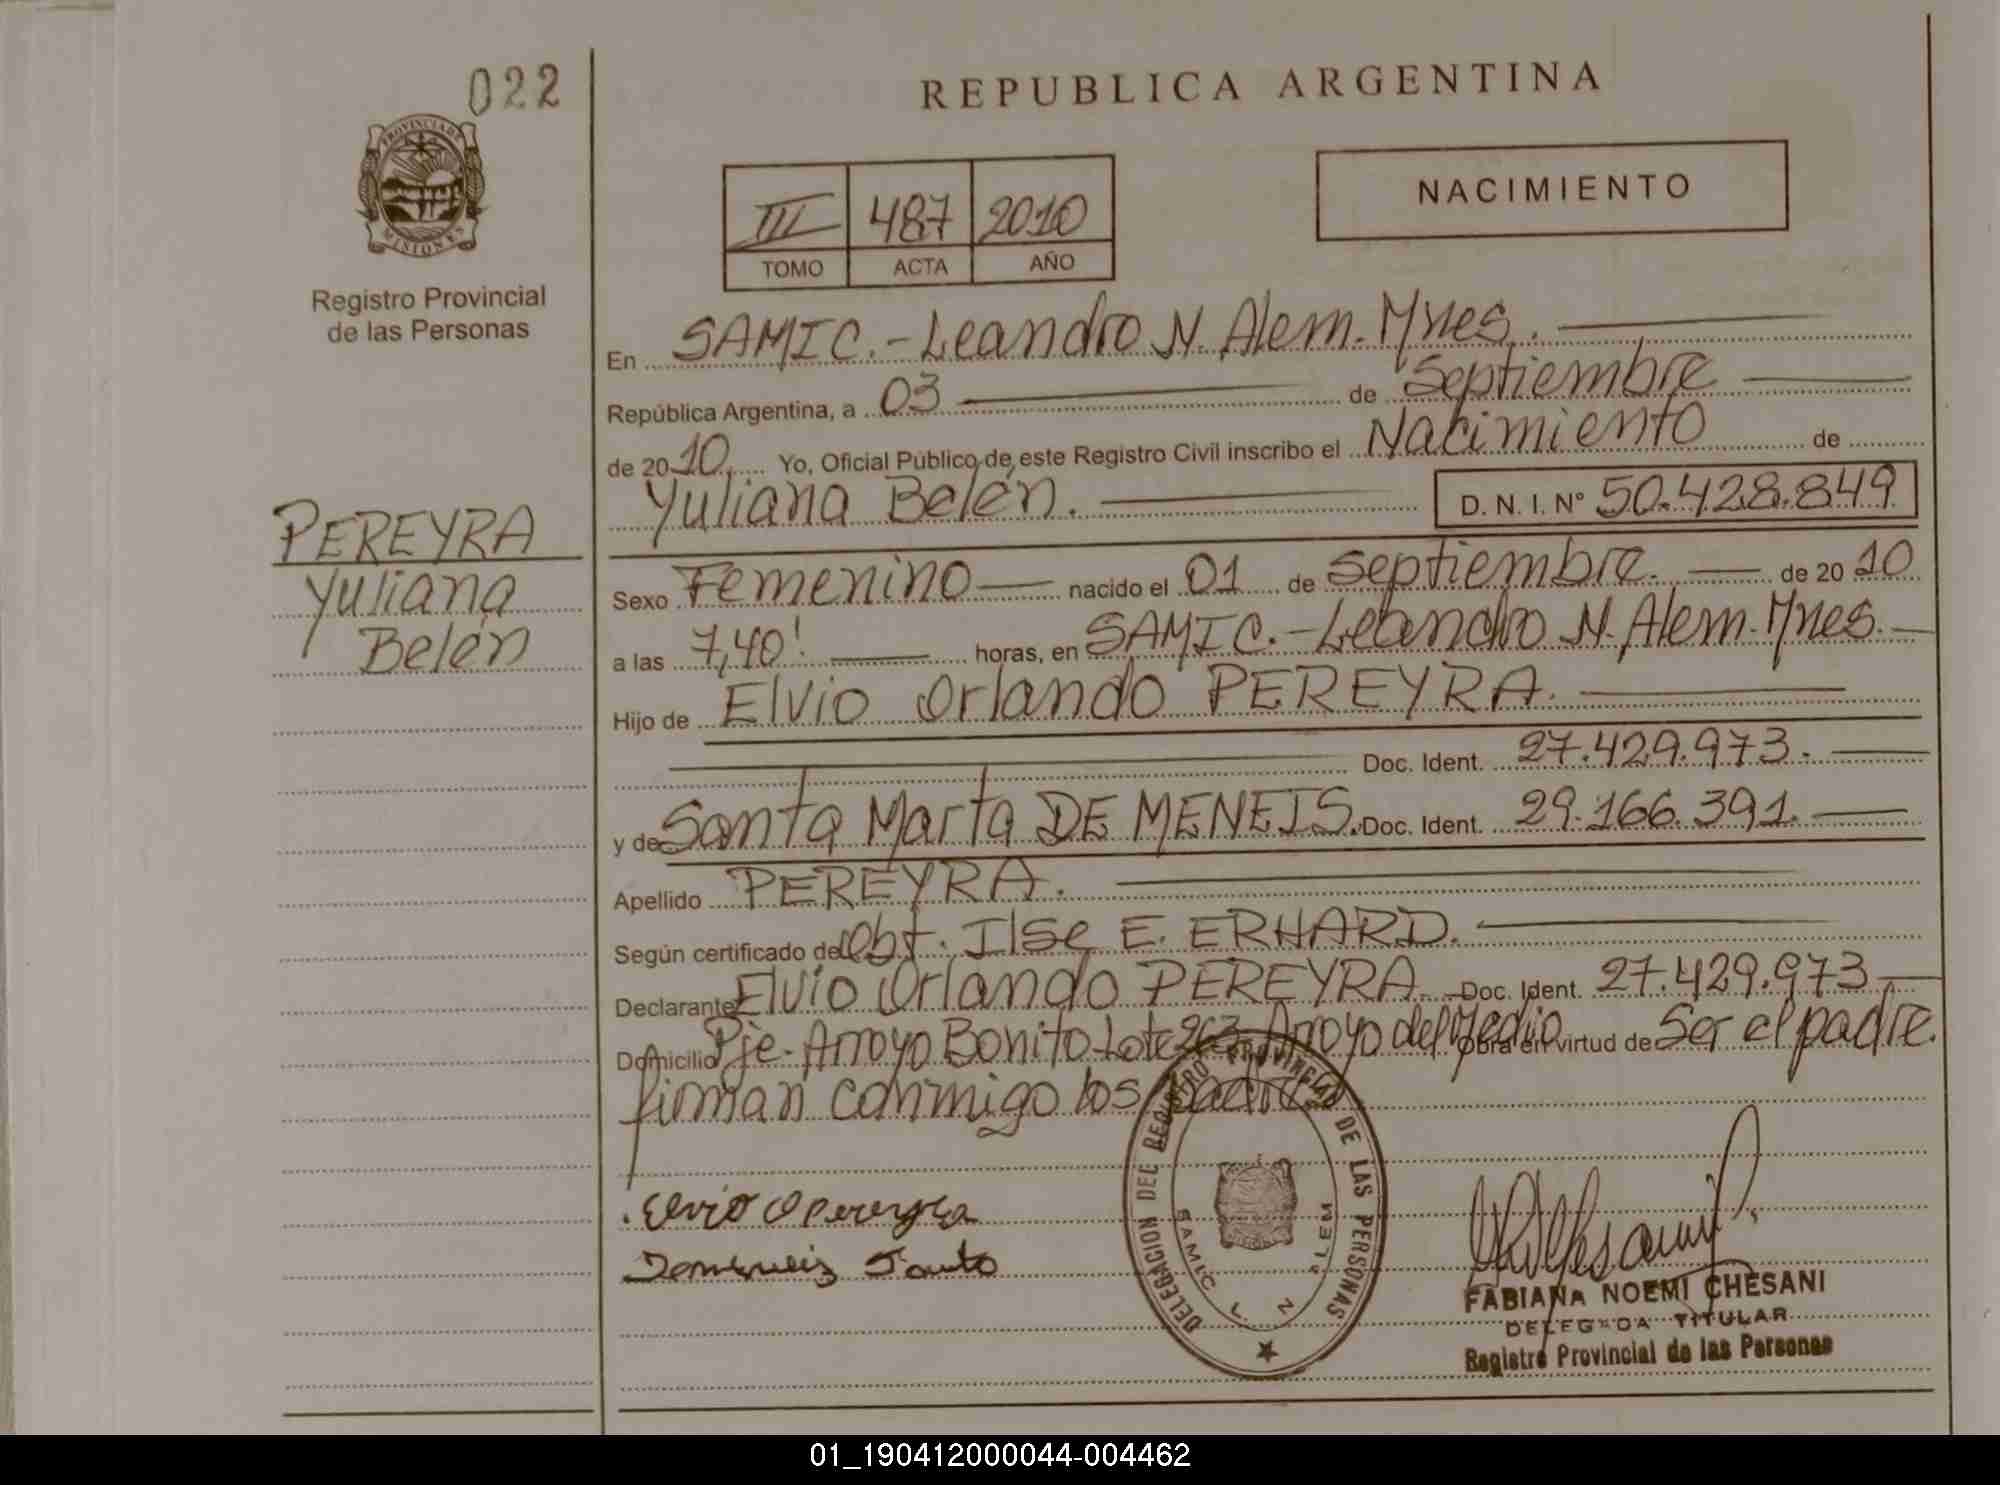 022
REPUBLICA ARGENTINA
PROVINCIA DE
MISIONES
Registro Provincial
de las Personas
III 487 2010
TOMO ACTA AÑO
NACIMIENTO
En SAMIC.-Leandro N. Alem. Mnes.
República Argentina, a 03 de Septiembre
de 2010. Yo, Oficial Público de este Registro Civil inscribo el Nacimiento de
Yuliana Belén. D. N. I. Nº 50.428.849
PEREYRA
Yuliana
Belén
Sexo Femenino nacido el 01 de Septiembre. de 2010
a las 7,40' horas, en SAMIC.-Leandro N. Alem. Mnes.
Hijo de Elvio Orlando PEREYRA.
Doc. Ident. 27.429.973.
y de Santa Marta DE MENEIS. Doc. Ident. 29.166.391.
Apellido PEREYRA.
Según certificado de Obt. Ilse E. ERHARD.
Declarante Elvio Orlando PEREYRA. Doc. Ident. 27.429.973
Domicilio Pje. Arroyo Bonito Lote 263 Arroyo del Medio Obra en virtud de Ser el padre.
firman conmigo los padres
DELEGACION DEL REGISTRO PROVINCIAL DE LAS PERSONAS
SAMIC L. N. ALEM
Elvio O Pereyra
FABIANA NOEMI CHESANI
DELEGADA TITULAR
Registro Provincial de las Personas
01_190412000044-004462